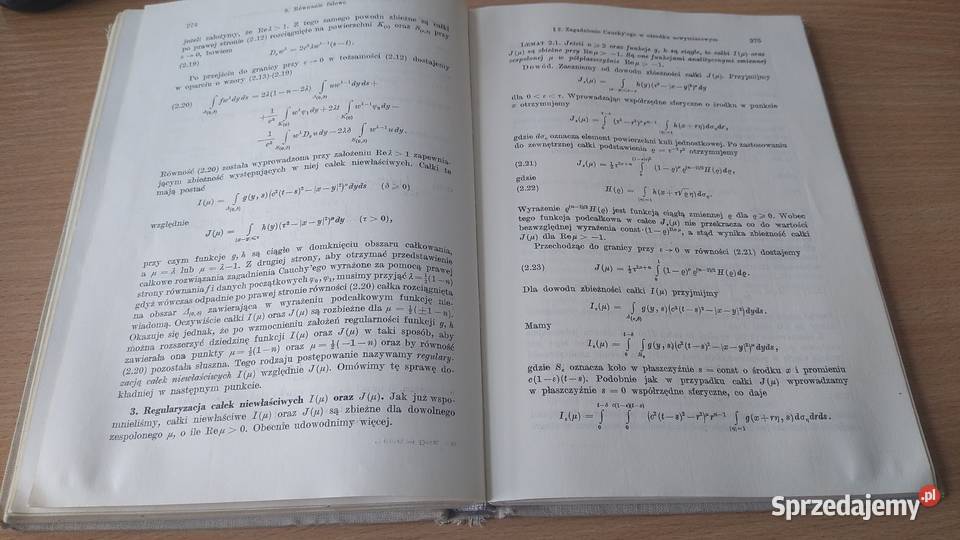 274
9. Równanie falowe
jeżeli założymy, że Re λ > 1. Z tego samego powodu zbieżne są całki
po prawej stronie (2.12) rozciągnięte na powierzchni
ε → 0, bowiem
(2.19)
Po przejściu do granicy przy ε → 0 w tożsamości (2.12) dostajemy
w oparciu o wzory (2.13)-(2.19)
(2.20)
Równość (2.20) została wyprowadzona przy założeniu Re λ > 1 zapewnia-
jącym zbieżność występujących w niej całek niewłaściwych. Całki te
mają postać
I(μ) = ∫ g(y, s)(c²(t−s)²−|x−y|²)^μ dy ds (δ ⩾ 0)
względnie
J(μ) = ∫ h(y)(τ²−|x−y|²)^μ dy (τ > 0),
przy czym funkcje g, h są ciągłe w domknięciu obszaru całkowania,
a μ = λ lub μ = λ−1. Z drugiej strony, aby otrzymać przedstawienie
całkowe rozwiązania zagadnienia Cauchy'ego wyrażone za pomocą prawej
strony równania f i danych początkowych φ₀, φ₁, musimy przyjąć λ = ½(1−n)
gdyż wówczas odpadnie po prawej stronie równości (2.20) całka rozciągnięta
na obszar zawierająca w wyrażeniu podcałkowym funkcję nie-
wiadomą. Oczywiście całki I(μ) oraz J(μ) są rozbieżne dla μ = ½(±1−n).
Okazuje się jednak, że po wzmocnieniu założeń regularności funkcji g, h
można rozszerzyć dziedzinę funkcji I(μ) oraz J(μ) w taki sposób, aby
zawierała ona punkty μ = ½(1−n) oraz μ = ½(−1−n) oraz by równość
(2.20) pozostała słuszna. Tego rodzaju postępowanie nazywamy regulary-
zacją całek niewłaściwych I(μ) względnie J(μ). Omówimy tę sprawę do-
kładniej w następnym punkcie.
3. Regularyzacja całek niewłaściwych I(μ) oraz J(μ). Jak już wspo-
mnieliśmy, całki niewłaściwe I(μ) oraz J(μ) są zbieżne dla dowolnego
zespolonego μ, o ile Re μ > 0. Obecnie udowodnimy więcej.
§ 2. Zagadnienie Cauchy'ego w ośrodku
375
LEMAT 2.1. Jeżeli n ⩾ 2 oraz funkcje g, h są ciągłe, to całki I(μ) oraz
J(μ) są zbieżne przy Re μ > −1. Są one funkcjami analitycznymi zmiennej
zespolonej μ w półpłaszczyźnie Re μ > −1.
Dowód. Zaczniemy od dowodu zbieżności całki J(μ). Przyjmijmy
J_ε(μ) = ∫ h(y)(τ²−|x−y|²)^μ dy
dla 0 < ε < τ. Wprowadzając współrzędne sferyczne o środku w punkcie
x otrzymujemy
J_ε(μ) = ∫ (τ²−r²)^μ r^{n−1} ∫ h(x+rη) dσ_η dr,
gdzie dσ_η oznacza element powierzchni kuli jednostkowej. Po zastosowaniu
do zewnętrznej całki podstawienia ϱ = τ⁻²r² otrzymujemy
(2.21) J_ε(μ) = ½τ^{2μ+n} ∫ (1−ϱ)^μ ϱ^{(n−2)/2} H(ϱ) dϱ,
gdzie
(2.22) H(ϱ) = ∫ h(x+τ√ϱ η) dσ_η.
Wyrażenie ϱ^{(n−2)/2} H(ϱ) jest funkcją ciągłą zmiennej ϱ dla ϱ ⩾ 0. Wobec
tego funkcja podcałkowa w całce J_ε(μ) nie przekracza co do wartości
bezwzględnej wyrażenia const·(1−ϱ)^{Re μ}, a stąd wynika zbieżność całki
J(μ) dla Re μ > −1.
Przechodząc do granicy przy ε → 0 w równości (2.21) dostajemy
(2.23) J(μ) = ½τ^{2μ+n} ∫ (1−ϱ)^μ ϱ^{(n−2)/2} H(ϱ) dϱ.
Dla dowodu zbieżności całki I(μ) przyjmijmy
I_ε(μ) = ∫ g(y, s)(c²(t−s)²−|x−y|²)^μ dy ds.
Mamy
I_ε(μ) = ∫ ∫ g(y, s)(c²(t−s)²−|x−y|²)^μ dy ds,
gdzie S_s oznacza koło w płaszczyźnie s = const o środku x i promieniu
c(1−ε)(t−s). Podobnie jak w przypadku całki J(μ) wprowadzamy
w płaszczyźnie s = 0 współrzędne sferyczne, co daje
I_ε(μ) = ∫ ∫ (c²(t−s)²−r²)^μ r^{n−1} ∫ g(x+rη, s) dσ_η dr ds.
Sprzedajemy.pl